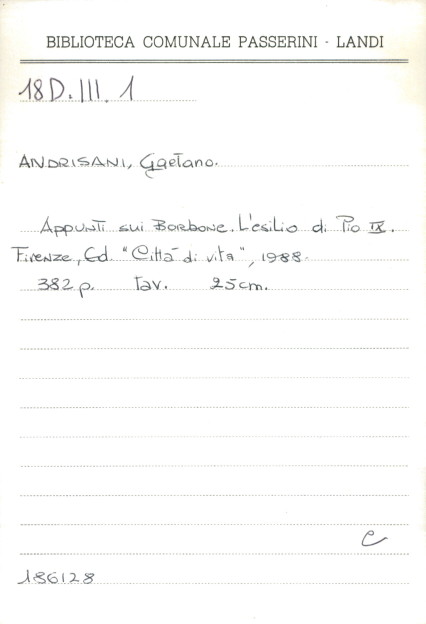 BIBLIOTECA COMUNALE PASSERINI - LANDI
18D.III.1
ANDRISANI, Gaetano.
Appunti sui Borbone. L'esilio di Pio IX.
Firenze, Ed. "Città di vita", 1988.
382 p. Tav. 25cm.
C
186128